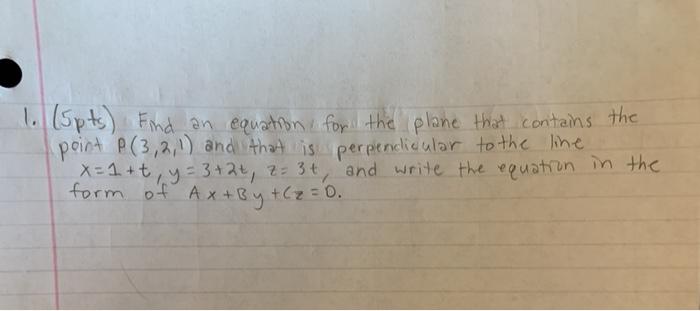 1. (5pts) Find an equation for the plane that contains the
point P(3,2,1) and that is perpendicular to the line
x=1+t, y=3+2t, z=3t, and write the equation in the
form of Ax+By+Cz=D.